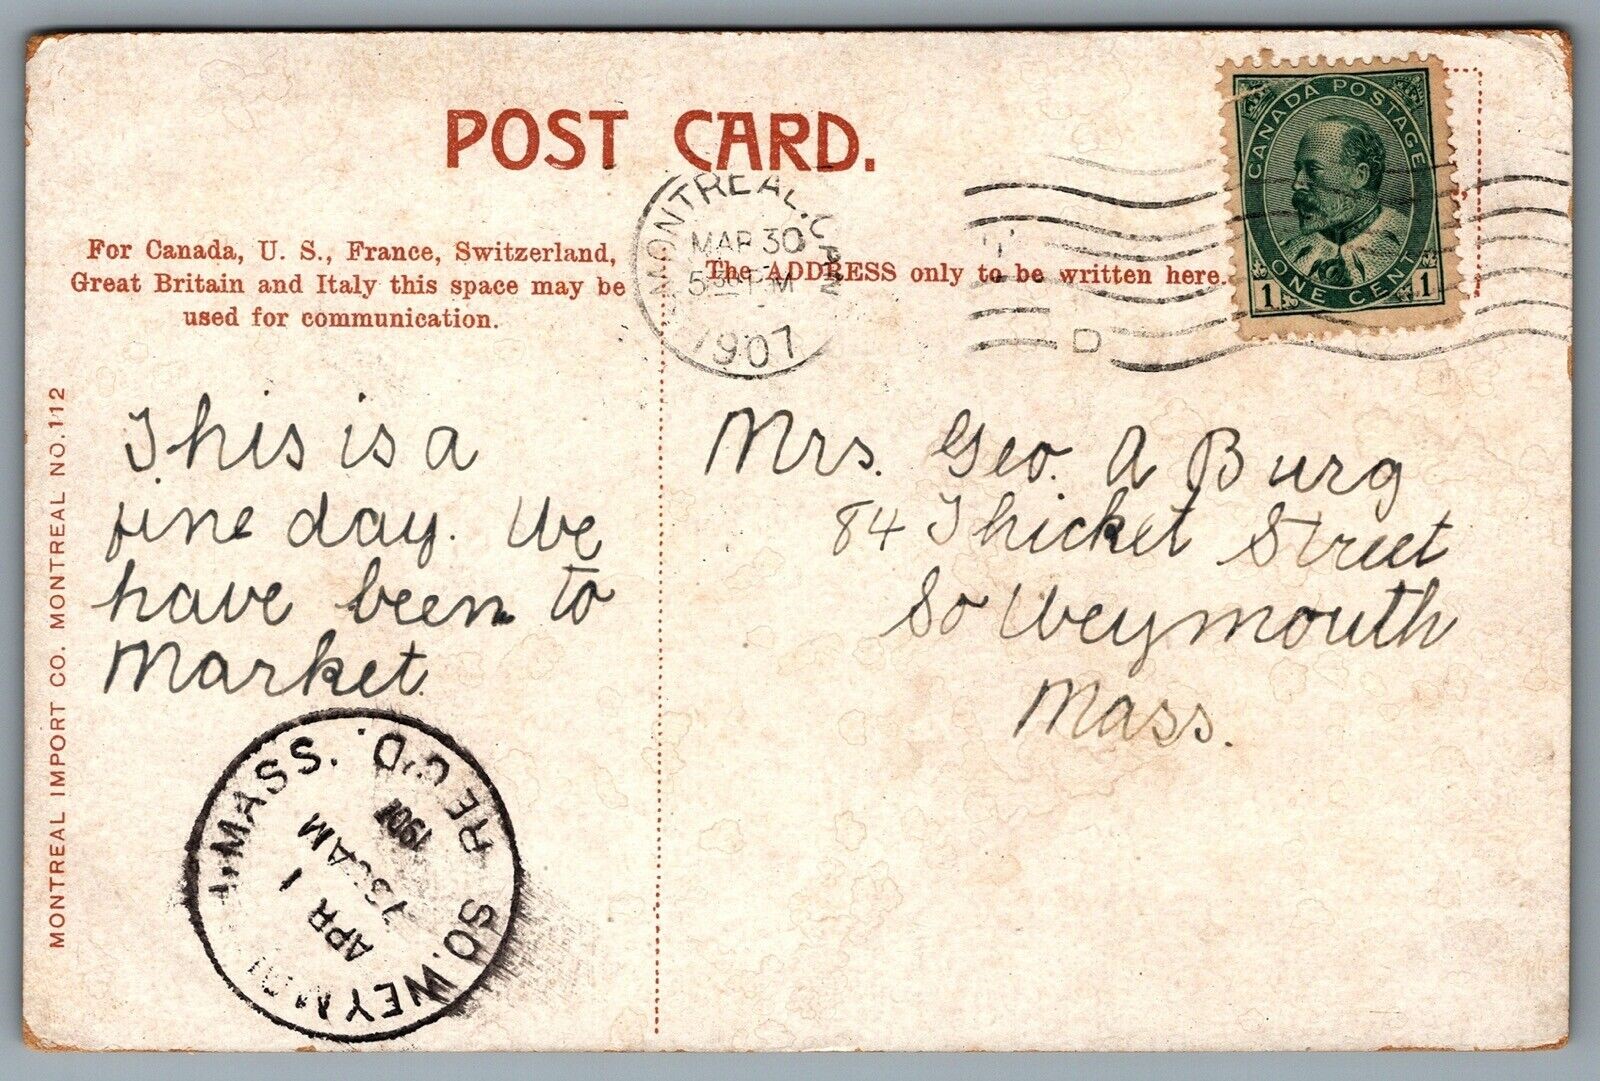 POST CARD.
For Canada, U. S., France, Switzerland,
Great Britain and Italy this space may be
used for communication.
The ADDRESS only to be written here.
MONTREAL, CAN
MAR 30
5 30 PM
1907
D
CANADA POSTAGE
1 ONE CENT 1
This is a
fine day. We
have been to
Market.
Mrs. Geo. A Burg
84 Thicket Street
So Weymouth
Mass.
SO. WEYMOUTH, MASS. REC'D.
APR 1
AM
1907
MONTREAL IMPORT CO. MONTREAL NO. 112